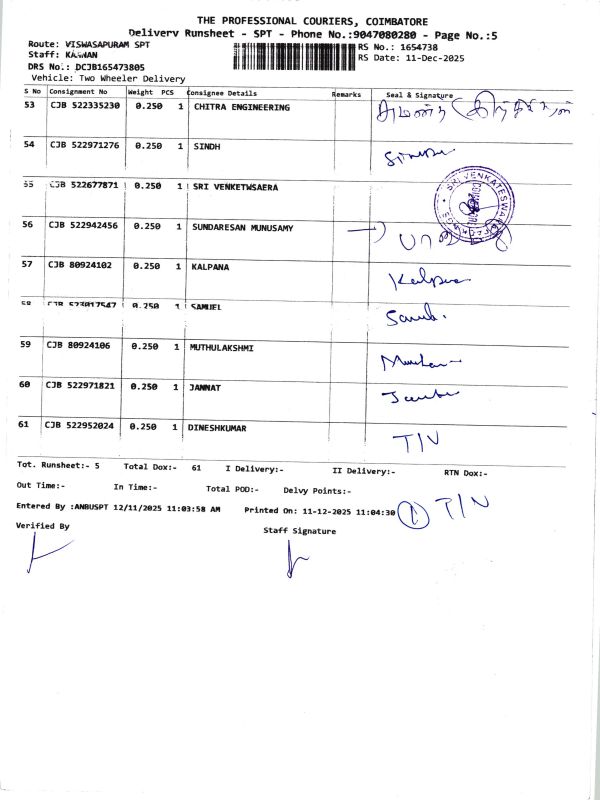 THE PROFESSIONAL COURIERS, COIMBATORE
Delivery Runsheet - SPT - Phone No.:9047080280 - Page No.:5
Route: VISWASAPURAM SPT RS No.: 1654738
Staff: KANNAN RS Date: 11-Dec-2025
DRS No.: DCJB165473805
Vehicle: Two Wheeler Delivery
S No Consignment No Weight PCS Consignee Details Remarks Seal & Signature
53 CJB 522335230 0.250 1 CHITRA ENGINEERING
54 CJB 522971276 0.250 1 SINDH
55 CJB 522677871 0.250 1 SRI VENKETWSAERA
56 CJB 522942456 0.250 1 SUNDARESAN MUNUSAMY
57 CJB 80924102 0.250 1 KALPANA Kalpana
58 CJB 523017547 0.250 1 SAMUEL
59 CJB 80924106 0.250 1 MUTHULAKSHMI
60 CJB 522971821 0.250 1 JANNAT
61 CJB 522952024 0.250 1 DINESHKUMAR T/N
Tot. Runsheet:- 5 Total Dox:- 61 I Delivery:- II Delivery:- RTN Dox:-
Out Time:- In Time:- Total POD:- Delvy Points:-
Entered By :ANBUSPT 12/11/2025 11:03:58 AM Printed On: 11-12-2025 11:04:30 1 T/N
Verified By Staff Signature